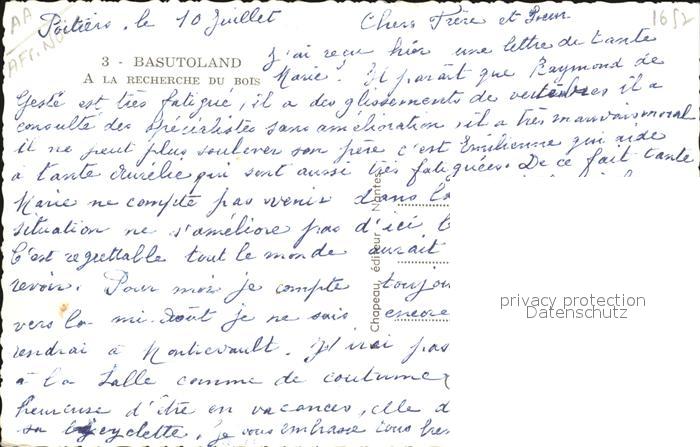 AA
AFR.
1652
Poitiers, le 10 Juillet
Chers Frère et Soeur
3 - BASUTOLAND
A LA RECHERCHE DU BOIS
J'ai reçu hier une lettre de tante
Marie. Il paraît que Raymond de
Gesté est très fatigué, il a des glissements de vertèbres il a
consulté des spécialistes sans amélioration, il a très mauvais moral
il ne peut plus soulever son père c'est Emilienne qui aide
à tante Aurélie qui sont aussi très fatiguées. De ce fait tante
Marie ne compte pas venir dans la
situation ne s'améliore pas d'ici l
C'est regrettable tout le monde aurait
revoir. Pour moi je compte toujou
vers la mi-Août je ne sais encore
rendrai à Montrevault. J'irai pas
à la Salle comme de coutume
heureuse d'être en vacances, elle d
sa bicyclette, je vous embrasse tous
Chapeau, éditeur - Nantes
privacy protection
Datenschutz